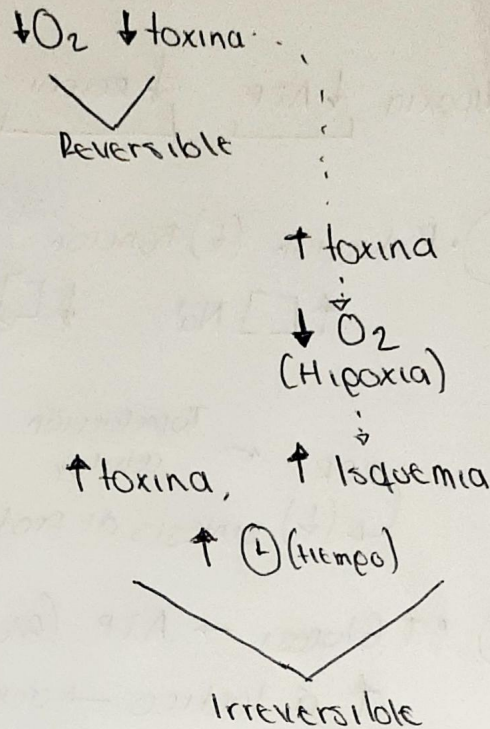 ↓O₂ ↓toxina
Reversible
↑ toxina
↓ O₂
(Hipoxia)
↑ toxina, ↑ Isquemia
↑ (tiempo)
Irreversible